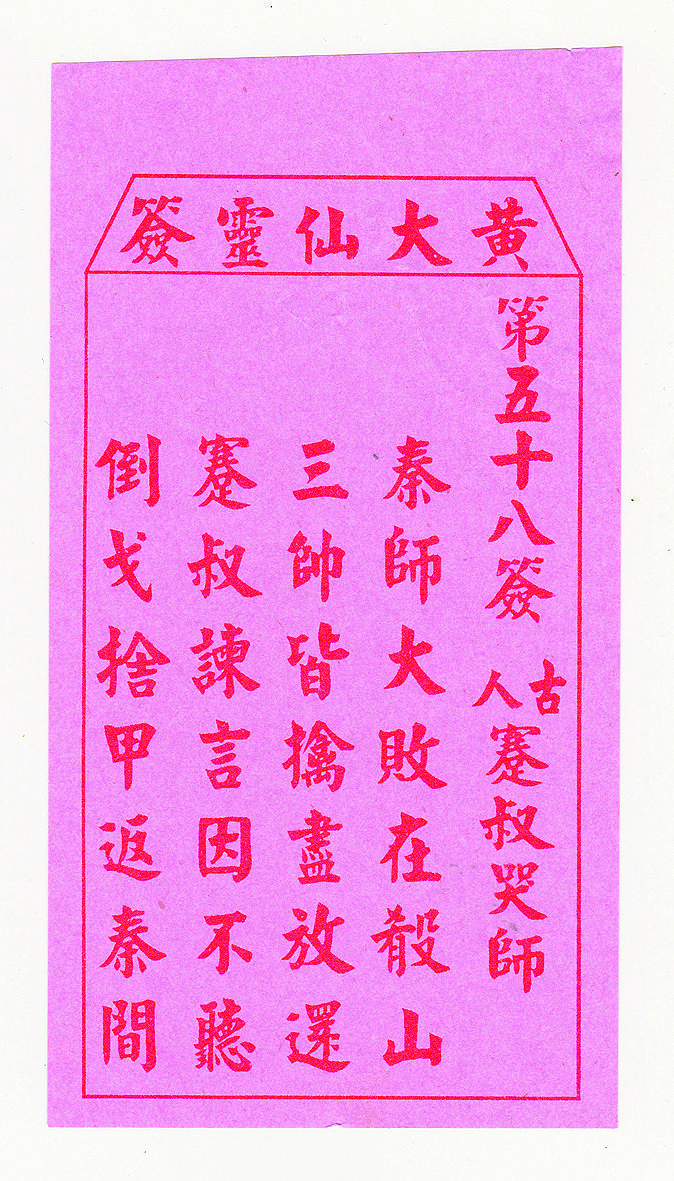 黃大仙靈簽
第五十八簽 古人 蹇叔哭師
秦師大敗在殽山
三帥皆擒盡放還
蹇叔諫言因不聽
倒戈捨甲返秦間